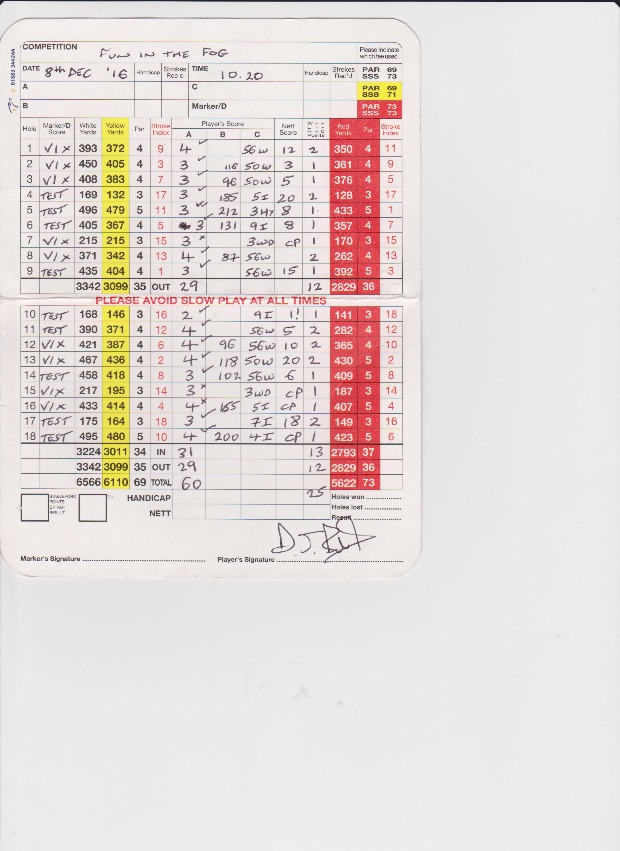 COMPETITION FUN IN THE FOG Please indicate which tee used.
DATE 8th DEC '16 Handicap Strokes Rec'd TIME 10.20 Handicap Strokes Rec'd PAR 69 SSS 73
A C PAR 69 SSS 71
B Marker/D PAR 73 SSS 73
Hole Marker/D Score White Yards Yellow Yards Par Stroke Index Player's Score A B C Nett Score Red Yards Par Stroke Index
1 V1X 393 372 4 9 4 ✓ 56W 12 2 350 4 11
2 V1X 450 405 4 3 3 ✓ 116 50W 3 1 361 4 9
3 V1X 408 383 4 7 3 ✓ 96 50W 5 1 376 4 5
4 TEST 169 132 3 17 3 ✓ 185 5I 20 2 128 3 17
5 TEST 496 479 5 11 3 ✓ 212 3HY 8 1 433 5 1
6 TEST 405 367 4 5 3 ✓ 131 9I 8 1 357 4 7
7 V1X 215 215 3 15 3 x 3WD CP 1 170 3 15
8 V1X 371 342 4 13 4 ✓ 87 56W 2 262 4 13
9 TEST 435 404 4 1 3 ✓ 56W 15 1 392 5 3
3342 3099 35 OUT 29 12 2829 36
PLEASE AVOID SLOW PLAY AT ALL TIMES
10 TEST 168 146 3 16 2 ✓ 9I 1! 1 141 3 18
11 TEST 390 371 4 12 4 ✓ 56W 5 2 282 4 12
12 V1X 421 387 4 6 4 ✓ 96 56W 10 2 365 4 10
13 V1X 467 436 4 2 4 ✓ 118 50W 20 2 430 5 2
14 TEST 458 418 4 8 3 ✓ 102 56W 6 1 409 5 8
15 V1X 217 195 3 14 3 x 3WD CP 1 187 3 14
16 V1X 433 414 4 4 4 x 165 5I CP 1 407 5 4
17 TEST 175 164 3 18 3 ✓ 7I 18 2 149 3 16
18 TEST 495 480 5 10 4 ✓ 200 4I CP 1 423 5 6
3224 3011 34 IN 31 13 2793 37
3342 3099 35 OUT 29 12 2829 36
6566 6110 69 TOTAL 60 5622 73
STABLEFORD POINTS OR PAR RESULT HANDICAP 25 Holes won
NETT Holes lost
Result
Marker's Signature Player's Signature